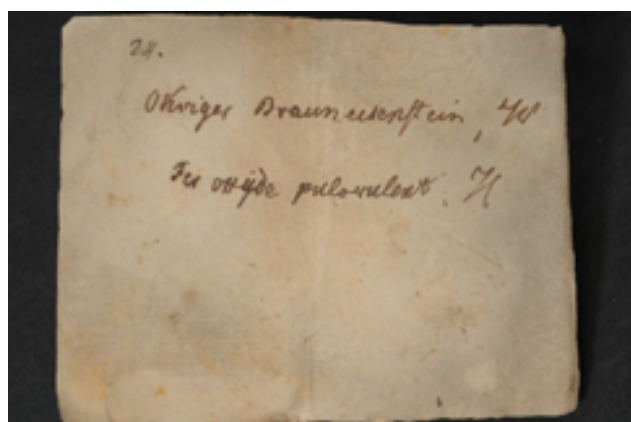 24.
Okriger Brauneisenstein, W
Fer oxÿde pulverulent. H